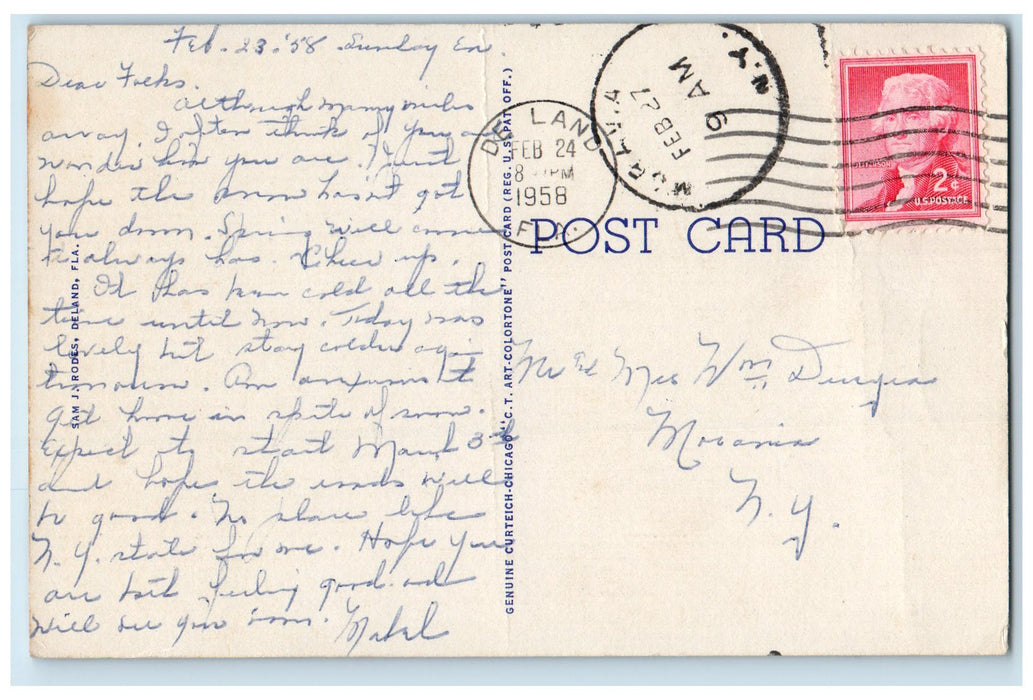 Feb. 23. '58 Sunday Eve.
Dear Folks.
Although many miles
away I often think of you and
wonder how you are. I
hope the snow hasn't got
you down. Spring will come
it always has. Cheer up.
It has been cold all the
time until now. Today was
lovely but stay colder again
tomorrow. Am anxious to
get home in spite of snow.
Expect to start March 3rd
and hope the roads will
be good. No place like
N.Y. state for me. Hope you
are both feeling good and
will see you soon. Mabel
SAM J. RODES, DELAND, FLA.
GENUINE CURTEICH-CHICAGO "C.T. ART-COLORTONE" POST CARD (REG. U.S. PAT. OFF.)
DE LAND
FEB 24
8 PM
1958
FLA.
MORAVIA
FEB 27
9 AM
N.Y.
2¢
U.S. POSTAGE
POST CARD
Mr & Mrs Wm Durgea
Moravia
N.Y.